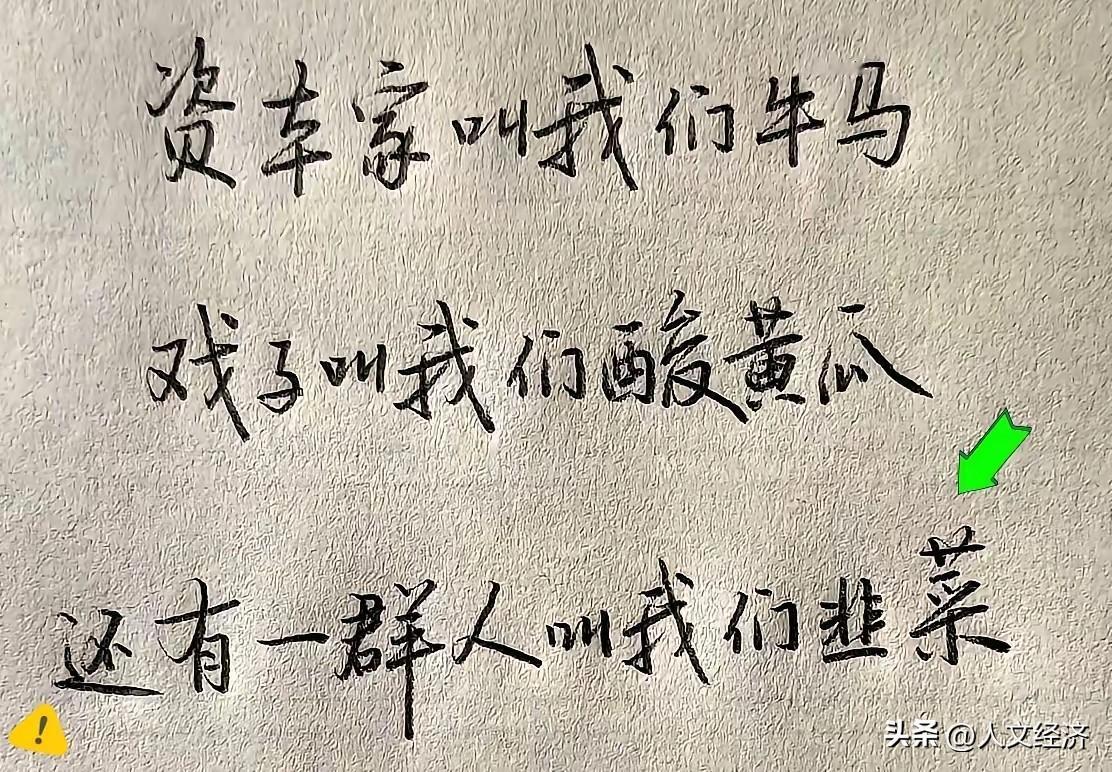 资本家叫我们牛马
戏子叫我们酸黄瓜
还有一群人叫我们韭菜
头条 @人文经济